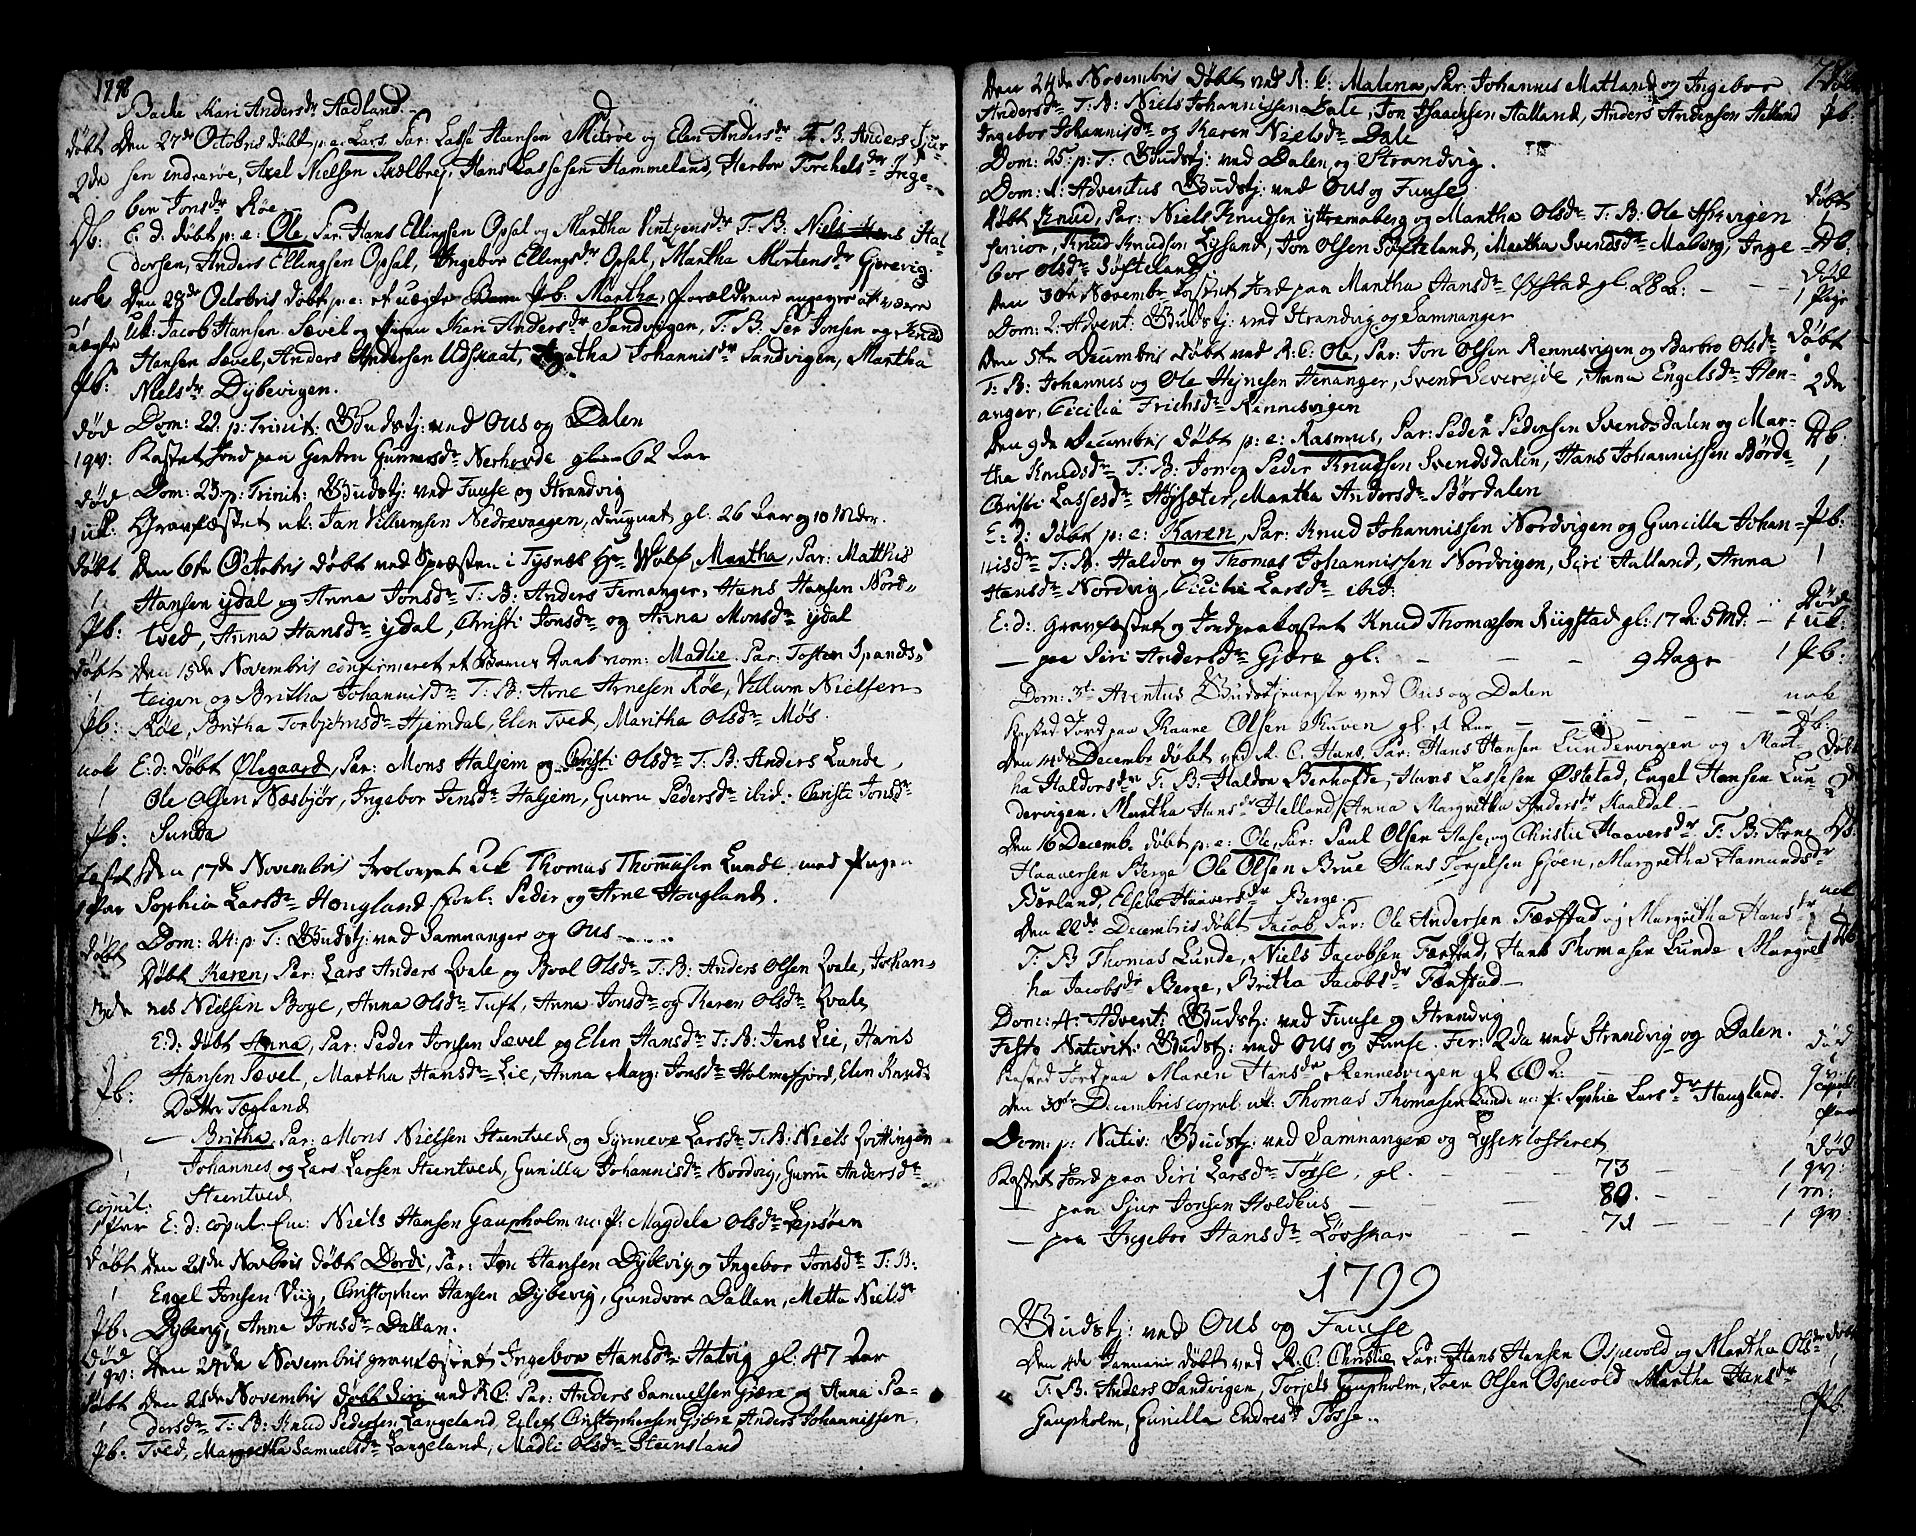 1798
Backe Kari Andersdr Aadland.
døbt Den 27de Octobris døbt p. e. Lars, Par: Lasse Hansen Mitrøe og Elen Andersdr T. B: Anders Sjur-
2dr sen indrerøe, Axel Nielsen Skælbrej, Hans Lassesen Hammeland, Herbor Torchelsdr Inge-
ber Jonsdr Røe
Db: E: d: døbt p: e: Ole, Par: Hans Ellingsen Opsal og Martha Vintzensdr T: B: Niels Hal-
dorsen, Anders Ellingsen Opsal, Ingebor Ellingsdr Opsal, Martha Mortensdr Gjerevig.
nok Den 28de Octobris døbt p: e: et uægte Barn Pb: Martha, forældrene angegve at være
1 uægte UK: Jacob Hansen Sævel og pigen Kari Andersdr Sandvigen, T: B: Per Jonsen og Knud
Hansen Sævel, Anders Andersen Udskaat, Agatha Johannisdr Sandvigen, Martha
Pb: Nielsdr Dybevigen.
død Dom: 22: p: Trinit: Gudstj: ved Ous og Dalen
1 qv: Kastet Jord paa Gentru Gunnersdr Nerhovde gl. 62 Aar
død Dom: 23: p: Trinit: Gudstj: ved Fuuse og Strandvig
1 uk: Gravfæstet uk: Jan Villumsen Nedrevaagen, drugnet gl: 26 Aar og 10 Mdr.
døbt Den 6te Octobris døbt ved Præsten i Tysnæs Hr Wolf, Martha, Par: Matthis
1 Hansen ydal og Anna Jonsdr T: B: Anders Femanger, Hans Hansen Nord-
Pb: tved, Anna Hansdr ydal, Christi Jonsdr og Anna Monsdr ydal
døbt Den 15de Novembris confirmeret et Barns Daab nom: Madlie. Par: Tosten Spands-
1 teigen og Britha Johannisdr T: B: Arne Arnesen Røe, Villum Nielsen
Pb: Røe, Britha Torbjørnsdr Hjemdal, Elen Tved, Maritha Olsdr Møs.
nok E: d: Døbt Ølegaard, Par: Mons Haljem og Christi Olsdr T: B: Anders Lunde,
1 Ole Olsen Næsbjør, Ingebor Jensdr Haljem, Guru Pedersdr ibid: Christi Jonsdr
Pb: Sunda
Den 17de Novembris trolovet Thomas Thomassen Lunde med Pigen
1 Par Sophia Larsdr Hougland, forl: Peder og Arne Hougland.
døbt Dom: 24: p T: Gudstj: ved Samnanger og Ous
Døbt Karen, Par: Lars Anders Qvale og Boel Olsdr T: B: Anders Olsen Qvale, Johan-
3de nes Nielsen Boge, Anna Olsdr Tuft, Anna Jonsdr og Karen Olsdr Qvale
E: d: døbt Anna, Par: Peder Jonsen Sævel og Elen Hansdr T: B: Jens Lie, Hans
Pb: Hansen Sævel, Martha Hansdr Lie, Anna Marg: Jonsdr Holmefjord, Elen Knuds
Dotter Tægland
— Britha, Par: Mons Nielsen Steentved, og Synneve Larsdr T: B: Niels Qvittingen
1 Johannes og Lars Larsen Steentved, Gunilla Johannisdr Nordvig, Guru Andersdr
Steentved
copul: 1 Par E: d: copul: Em: Niels Hansen Gaupholm m: p: Magdele Olsdr Lepsøen
døbt Den 21de Novbris døbt Dordi, Par: Jon Hansen Dybevig og Ingebor Jonsdr T: B:
1 Engel Jonsen Viig, Christopher Hansen Dybevig, Gundvor Dallan, Metta Nielsdr
Pb: Dybevig, Anna Jonsdr Dallan.
død 1 qv: Den 24de Novembris gravfæstet Ingebor Hansdr Hatvig gl: 47 Aar
døbt Den 21de Novembris døbt Siri ved R.C: Par: Anders Samuelsen Gjære og Anna Pe-
1 dersdr T: B: Knud Pedersen Langeland, Eilef Christophersen Gjære, Anders Johannissen
Pb: Tved, Margretha Samuelsdr Langeland, Madli Olsdr Steensland
Den 24de Novembris døbt ved R. C: Malena, Par: Johannes Matland og Ingebor
Andersdr T: B: Niels Johannissen Dale, Jon Isaachsen Halland, Anders Andersen Halland Pb:
Ingebor Johannisdr og Karen Nielsdr Dale
Dom: 25: p: T: Gudstj: ved Dalen og Strandvig.
Dom: 1: Adventus Gudstj: ved Ous og Fuuse. døbt
Døbt Knud, Par: Niels Knudsen yttremaberg og Martha Olsdr T: B: Ole Askvigen 1
senior, Knud Knudsen Lysand, Jon Olsen Søfteland, Martha Svendsdr Malvig, Inge- Db:
bor Olsdr Søfteland død
Den 30te Novembr kastet Jord paa Martha Hansdr Øxstad gl: 28 A: — — 1 Pige
Dom: 2: Advent: Gudstj: ved Strandvig og Samnanger
Den 5te Decembris døbt ved R. C: Ole, Par: Jon Olsen Rennesvigen og Barbro Olsdr døbt
T: B: Johannes og Ole Hejnesen Henanger, Svend Severejde, Anna Engelsdr Hen- 2dr
anger, Cicilia Frichsdr Rennesvigen
Den 9de Decembris døbt p: e: Rasmus, Par: Peder Pedersen Svendsdalen og Mar- Db:
tha Knudsdr T: B: Jon og Peder Knudsen Svendsdalen, Hans Johannissen Børda- 1
Christi Lassesdr Høysæter, Martha Andersdr Børdalen
E: d: døbt p: e: Karen, Par: Knud Johannissen Nordvigen og Guncilla Johan- Pb:
nisdr T: B: Haldor og Thomas Johannissen Nordvigen, Siri Halland, Anna 1
Hansdr Nordvig, Cicilie Larsdr ibid.
E: d: Gravfæstet og Jordpaakastet Knud Thomassen Riigstad gl: 17 A: 5 Md. — død 1 uk:
— paa Siri Andersdr Gjæra gl: — — — 9 Dage 1 Pb:
Dom: 3t Aventus Gudstjeneste ved Ous og Dalen nok
Kasted Jord paa Raane Olsen Skuven gl: 1 Aar — — — — 1 Db:
Den 14de Decembr døbt ved R. C. Hans, Par: Hans Hansen Lundervigen og Mart- døbt
ha Haldorsdr T: B: Haldor Berhofde, Hans Lassesen Østetad, Engel Hansen Lun-
dervigen. Martha Hansdr Helland, Anna Margretha Andersdr Kaaldal. —
Den 16 Decembr døbt p: e: Ole, Par: Paul Olsen Hase, og Christie Haaversdr T: B: Arne Db:
Haaversen Berge Ole Olsen Brue Hans Torjelsen Gjøen, Margretha Hamundsdr
Børland, Elsebe Haaversdr Berge. — nok
Den 22de Decembris døbt Jacob, Par: Ole Andersen Færstad og Margretha Hansdr 1
T: B Thomas Lunde, Niels Jacobsen Færstad, Hans Thomasen Lunde Margret Db
ha Jacobsdr Berge, Britha Jacobsdr Færstad —
Dom: 4: Advent: Gudstj: ved Fuuse og Strandvig
Festo Nativit: Gudstj: ved Ous og Fuuse. Fer: 2da ved Strandvig og Dalen. død
Kasted Jord paa Maren Hansdr Rennesvigen gl. 60 A: 1 qv:
Den 30te Decembris copul: uk: Thomas Thomasen Lunde m: p: Sophie Larsdr Haugland. copul: 1 Par
Dom: p: Nativ: Gudstj: ved Samnanger og Lyseklosteret død
Kastet Jord paa Siri Larsdr Tøsse, gl. — 73 — 1 qv:
— paa Sjur Jonsen Holdhus — — 80. — 1 m:
— paa Ingebor Hansdr Løvskar — 71 — 1 qv:
1799
Gudstj: ved Ous og Fuuse
Den 4de Januarii døbt ved R. C. Christie Par: Hans Hansen Ospevold og Martha Olsdr døbt
T. B. Anders Sandvigen, Torjels Gaupholm, Joen Olsen Ospevold Martha Hansdr 1
Gaupholm, Gunilla Endresdr Tøsse. Pb.